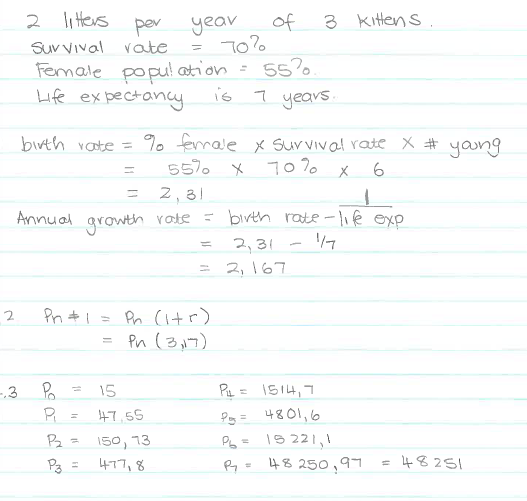 2 litters per year of 3 kittens.
Survival rate = 70%
Female population = 55%.
Life expectancy is 7 years.
birth rate = % female x survival rate x # young
= 55% x 70% x 6
= 2,31
Annual growth rate = birth rate - 1/life exp
= 2,31 - 1/7
= 2,167
2 Pn+1 = Pn (1+r)
= Pn (3,17)
.3 P0 = 15
P1 = 47,55
P2 = 150,73
P3 = 477,8
P4 = 1514,7
P5 = 4801,6
P6 = 15 221,1
P7 = 48 250,97 = 48 251